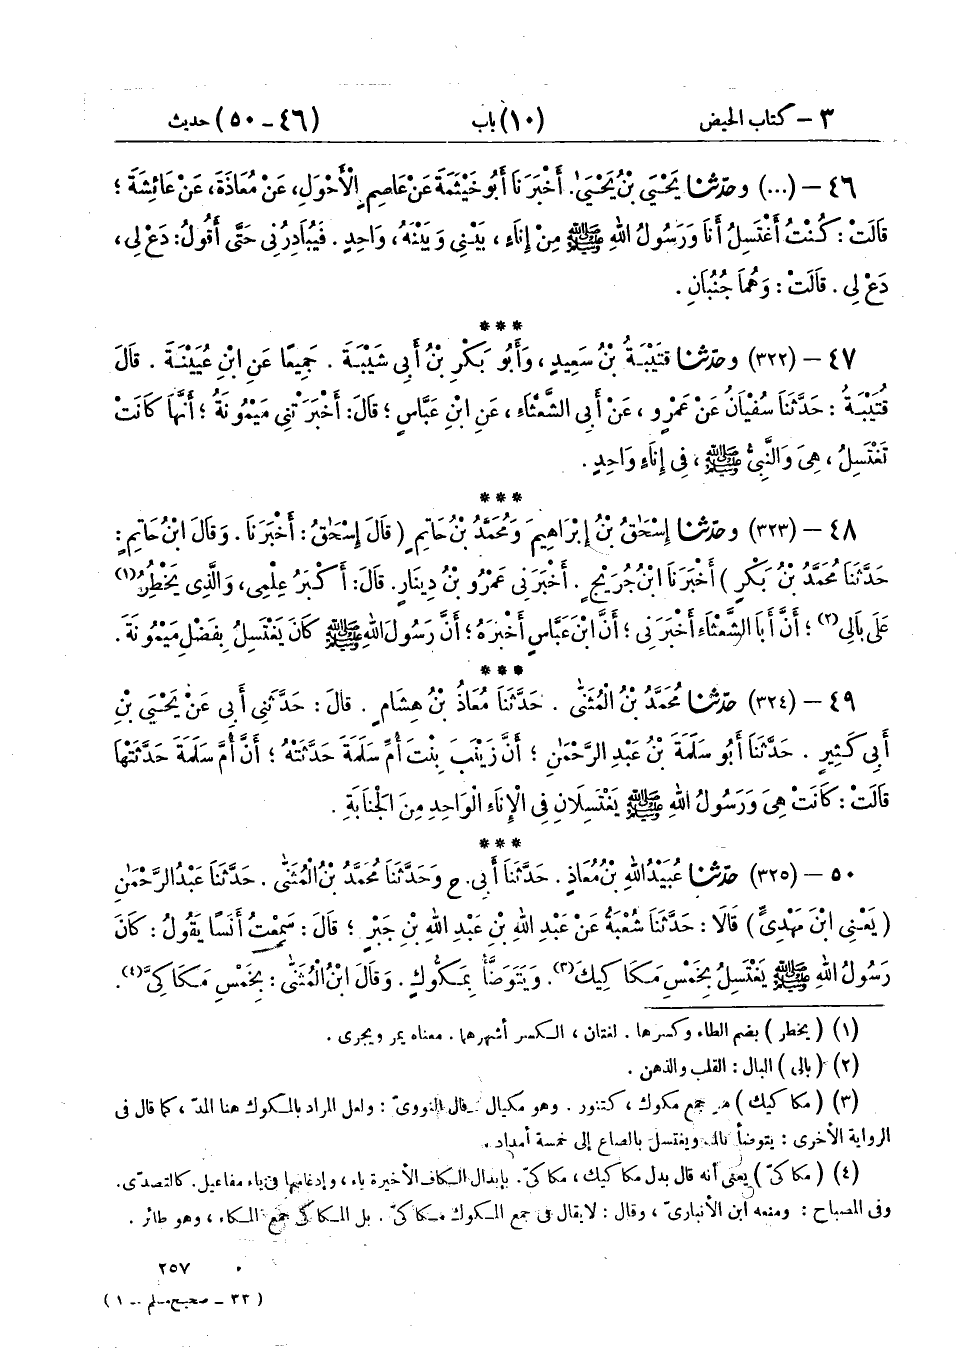 ٣ – كتاب الحيض (١٠) باب (٤٦ – ٥٠) حديث
٤٦ – (...) وحدّثنا يَحْيَى بْنُ يَحْيَىٰ. أَخْبَرَنَا أَبُو خَيْثَمَةَ عَنْ عَاصِمٍ الْأَحْوَلِ، عَنْ مُعَاذَةَ، عَنْ عَائِشَةَ ؛
قَالَتْ : كُنْتُ أَغْتَسِلُ أَنَا وَرَسُولُ اللهِ ﷺ مِنْ إِنَاءٍ ، بَيْنِي وَبَيْنَهُ، وَاحِدٍ . فَيُبَادِرُنِي حَتَّى أَقُولُ: دَعْ لِي،
دَعْ لِي . قَالَتْ : وَهُمَا جُنُبَانِ .
***
٤٧ – (٣٢٢) وحدّثنا قُتَيْبَةُ بْنُ سَعِيدٍ ، وَأَبُو بَكْرِ بْنُ أَبِي شَيْبَةَ . جَمِيعًا عَنِ ابْنِ عُيَيْنَةَ . قَالَ
قُتَيْبَةُ : حَدَّثَنَا سُفْيَانُ عَنْ عَمْرٍو ، عَنْ أَبِي الشَّعْثَاءِ ، عَنِ ابْنِ عَبَّاسٍ ؛ قَالَ: أَخْبَرَتْنِي مَيْمُونَةُ ؛ أَنَّهَا كَانَتْ
تَغْتَسِلُ ، هِيَ وَالنَّبِيُّ ﷺ ، فِي إِنَاءٍ وَاحِدٍ .
***
٤٨ – (٣٢٣) وحدّثنا إِسْحَٰقُ بْنُ إِبْرَاهِيمَ وَمُحَمَّدُ بْنُ حَاتِمٍ ( قَالَ إِسْحَٰقُ : أَخْبَرَنَا . وَقَالَ ابْنُ حَاتِمٍ :
حَدَّثَنَا مُحَمَّدُ بْنُ بَكْرٍ ) أَخْبَرَنَا ابْنُ جُرَيْجٍ . أَخْبَرَنِي عَمْرُو بْنُ دِينَارٍ. قَالَ: أَكْبَرُ عِلْمِي، وَالَّذِي يَخْطُرُ(١)
عَلَى بَالِي(٢) ؛ أَنَّ أَبَا الشَّعْثَاءِ أَخْبَرَنِي ؛ أَنَّ ابْنَ عَبَّاسٍ أَخْبَرَهُ ؛ أَنَّ رَسُولَ اللهِ ﷺ كَانَ يَغْتَسِلُ بِفَضْلِ مَيْمُونَةَ .
***
٤٩ – (٣٢٤) حدّثنا مُحَمَّدُ بْنُ الْمُثَنَّىٰ . حَدَّثَنَا مُعَاذُ بْنُ هِشَامٍ . قَالَ : حَدَّثَنِي أَبِي عَنْ يَحْيَىٰ بْنِ
أَبِي كَثِيرٍ . حَدَّثَنَا أَبُو سَلَمَةَ بْنُ عَبْدِ الرَّحْمَٰنِ ؛ أَنَّ زَيْنَبَ بِنْتَ أُمِّ سَلَمَةَ حَدَّثَتْهُ ؛ أَنَّ أُمَّ سَلَمَةَ حَدَّثَتْهَا
قَالَتْ : كَانَتْ هِيَ وَرَسُولُ اللهِ ﷺ يَغْتَسِلَانِ فِي الْإِنَاءِ الْوَاحِدِ مِنَ الْجَنَابَةِ .
***
٥٠ – (٣٢٥) حدّثنا عُبَيْدُ اللهِ بْنُ مُعَاذٍ . حَدَّثَنَا أَبِي. ح وَحَدَّثَنَا مُحَمَّدُ بْنُ الْمُثَنَّىٰ . حَدَّثَنَا عَبْدُ الرَّحْمَٰنِ
( يَعْنِي ابْنَ مَهْدِيٍّ ) قَالَا : حَدَّثَنَا شُعْبَةُ عَنْ عَبْدِ اللهِ بْنِ عَبْدِ اللهِ بْنِ جَبْرٍ ؛ قَالَ : سَمِعْتُ أَنَسًا يَقُولُ : كَانَ
رَسُولُ اللهِ ﷺ يَغْتَسِلُ بِخَمْسِ مَكَاكِيكَ(٣). وَيَتَوَضَّأُ بِمَكُّوكٍ . وَقَالَ ابْنُ الْمُثَنَّىٰ : بِخَمْسِ مَكَاكِيَّ(٤).
(١) ( يخطر ) بضم الطاء وكسرها . لغتان ، الكسر أشهرهما . معناه يمر ويجرى .
(٢) ( بالى ) البال : القلب والذهن .
(٣) ( مكاكيك ) هو جمع مكوك ، كتنور . وهو مكيال . قال النووىّ : ولعل المراد بالمكوك هنا المدّ ، كما قال فى
الرواية الأخرى : يتوضأ بالمد ويغتسل بالصاع إلى خمسة أمداد .
(٤) ( مكاكىّ ) يعنى أنه قال بدل مكاكيك ، مكاكىّ . بإبدال الكاف الأخيرة ياء ، وإدغامها فى ياء مفاعيل. كالتصدّى.
وفى المصباح : ومنعه ابن الأنبارىّ ، وقال : لا يقال فى جمع المكوك مكاكىّ . بل المكاكىّ جمع المكاء ، وهو طائر .
٢٥٧
( ٣٣ – صحيح مسلم – ١ )